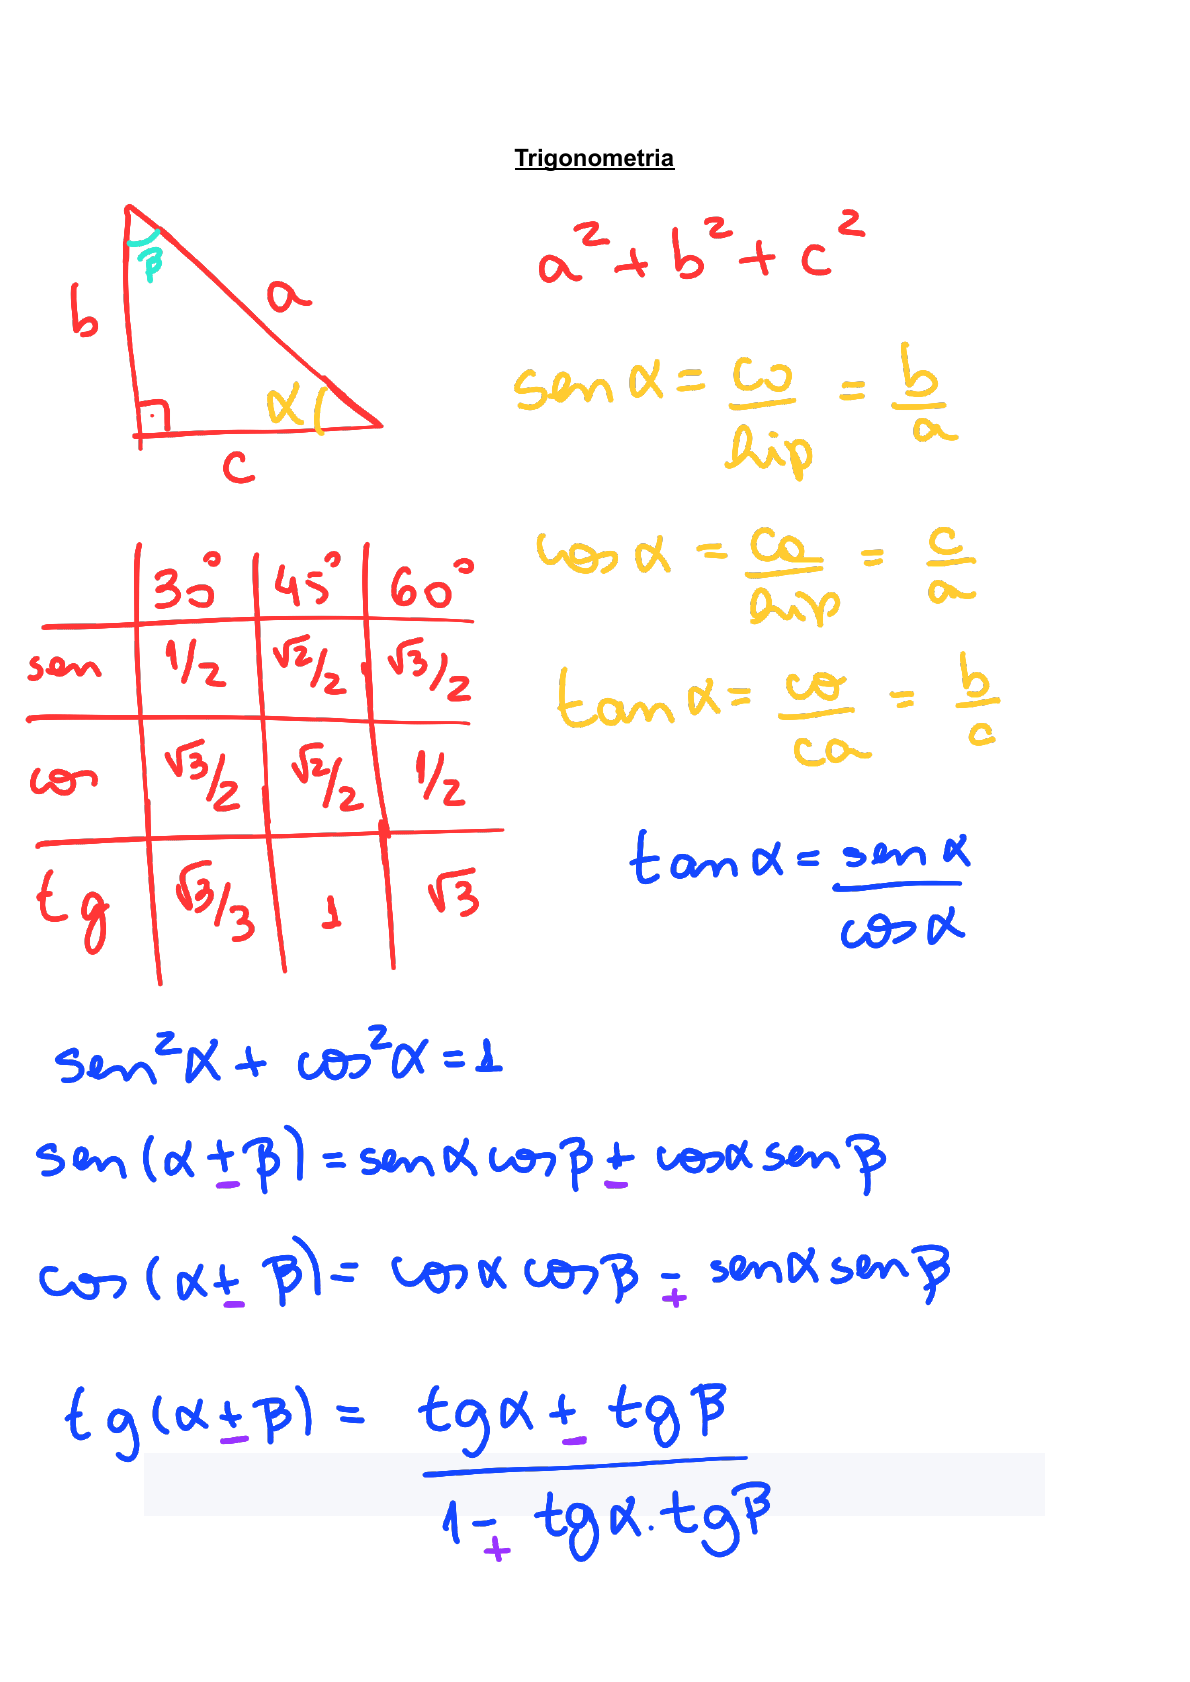 Trigonometria
β
b
a
α
c
a² + b² + c²
sen α = co/hip = b/a
cos α = ca/hip = c/a
tan α = co/ca = b/c
30° 45° 60°
sen 1/2 √2/2 √3/2
cos √3/2 √2/2 1/2
tg √3/3 1 √3
tan α = sen α/cos α
sen²α + cos²α = 1
sen (α ± β) = sen α cos β ± cos α sen β
cos (α ± β) = cos α cos β ∓ sen α sen β
tg (α ± β) = tg α ± tg β
1 ∓ tg α . tg β